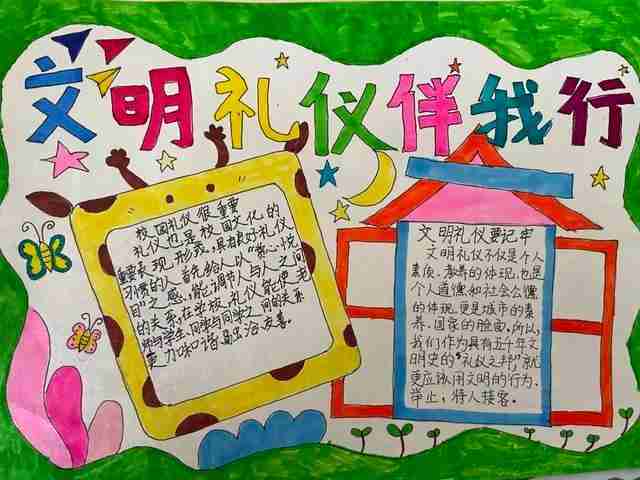 文明礼仪伴我行
校园礼仪很重要
礼仪也是校园文化的
重要表现形式,具有良好礼仪
习惯的人首先给人以“赏心悦
目”之感,能调节人与人之间
的关系,在学校,礼仪能使老
师与学生、同学与同学之间的关系
更力味口谐融洽友善。
文明礼仪要记牢
文明礼仪不仅是个人
素质、教养的体现,也是
个人道德和社会公德
的体现,更是城市的素
养、国家的脸面,所以,
我们作为具有五千年文
明史的“礼仪之邦”,就
更应该用文明的行为、
举止,待人接客。